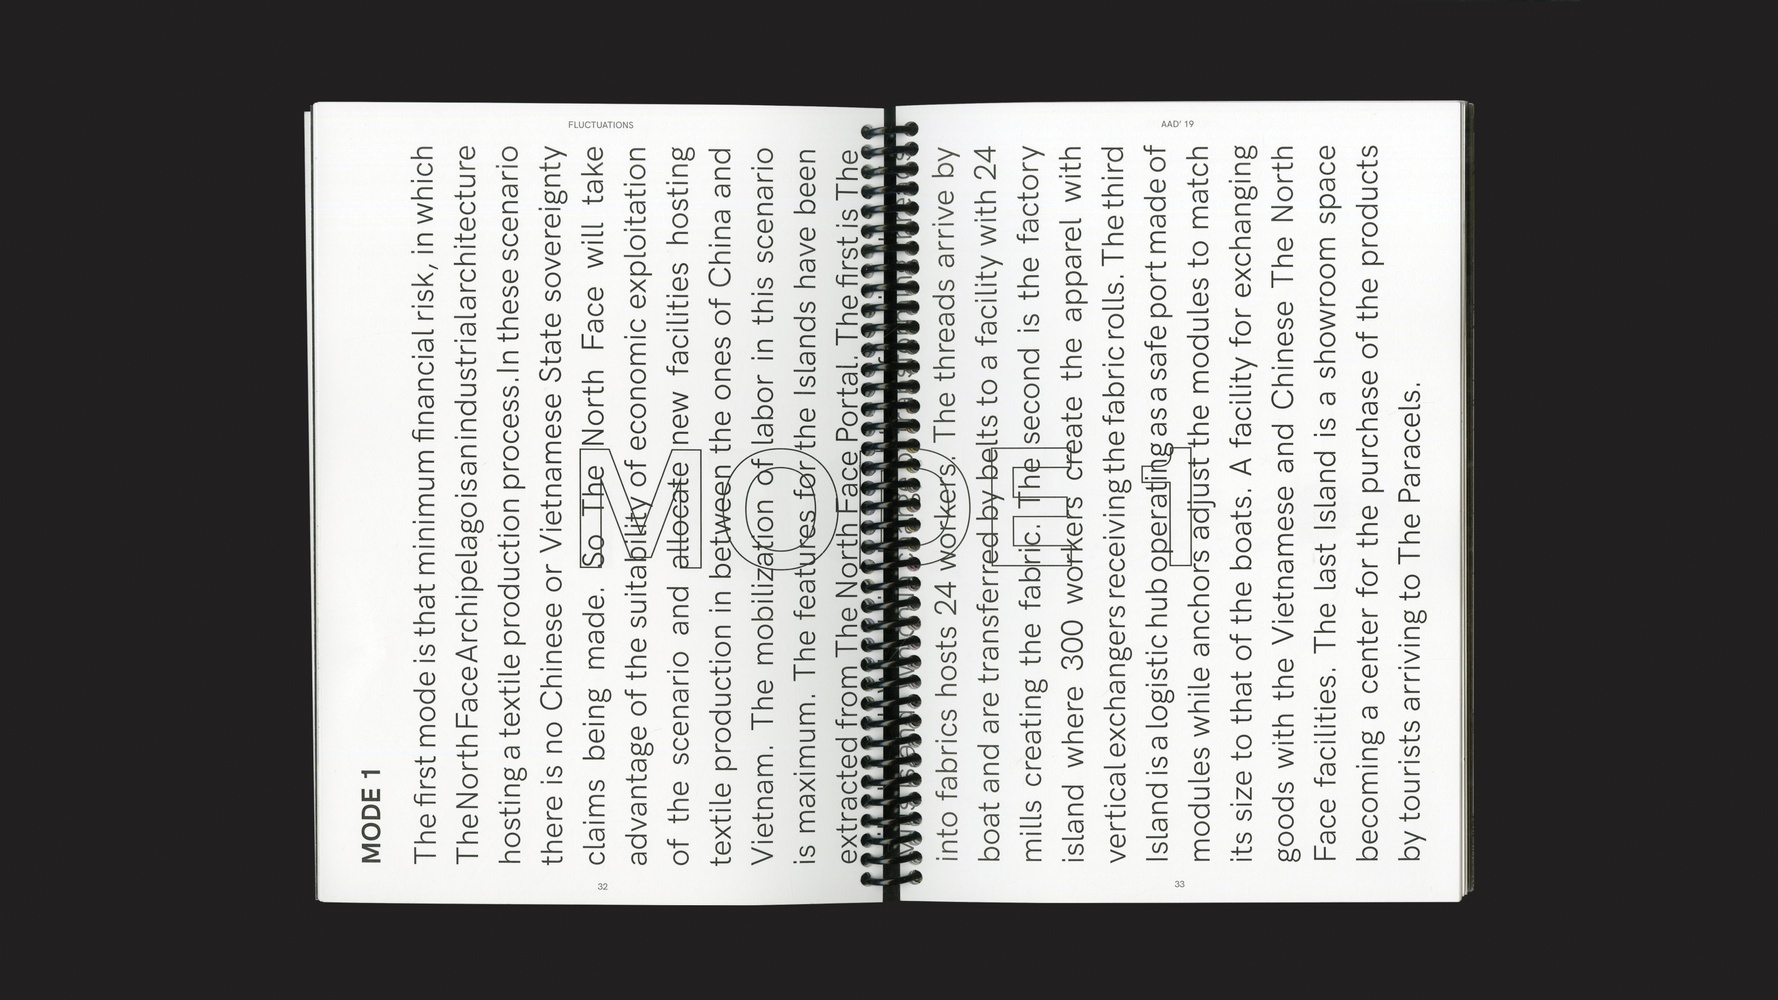 FLUCTUATIONS
AAD' 19
MODE 1
The first mode is that minimum financial risk, in which
The North Face Archipelago is an industrial architecture
hosting a textile production process. In these scenario
there is no Chinese or Vietnamese State sovereignty
claims being made. So The North Face will take
advantage of the suitability of economic exploitation
of the scenario and allocate new facilities hosting
textile production in between the ones of China and
Vietnam. The mobilization of labor in this scenario
is maximum. The features for the Islands have been
extracted from The North Face Portal. The first is The
into fabrics hosts 24 workers. The threads arrive by
boat and are transferred by belts to a facility with 24
mills creating the fabric. The second is the factory
island where 300 workers create the apparel with
vertical exchangers receiving the fabric rolls. The third
Island is a logistic hub operating as a safe port made of
modules while anchors adjust the modules to match
its size to that of the boats. A facility for exchanging
goods with the Vietnamese and Chinese The North
Face facilities. The last Island is a showroom space
becoming a center for the purchase of the products
by tourists arriving to The Paracels.
MODE 1
32
33